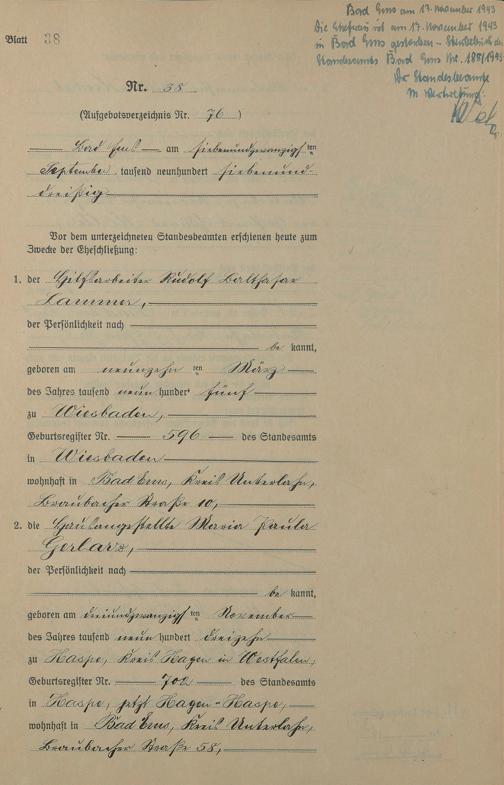 Bad Ems am 17. November 1943
Die Ehefrau ist am 17. November 1943
in Bad Ems gestorben - Sterbebuch des
Standesamts Bad Ems Nr. 188/1943
Der Standesbeamte
In Vertretung:
Blatt 38
Nr. 38
(Aufgebotsverzeichnis Nr. 76)
Bad Ems am siebenundzwanzigsten
September tausend neunhundert siebenund-
dreißig
Vor dem unterzeichneten Standesbeamten erschienen heute zum
Zwecke der Eheschließung:
1. der Hilfsarbeiter Rudolf Balthasar
Lammer,
der Persönlichkeit nach
be kannt,
geboren am neunzehnten März
des Jahres tausend neun hundert fünf
zu Wiesbaden,
Geburtsregister Nr. 596 des Standesamts
in Wiesbaden
wohnhaft in Bad Ems, Kreis Unterlahn,
Braubacher Straße 10,
2. die Hausangestellte Maria Paula
der Persönlichkeit nach
be kannt,
geboren am dreiundzwanzigsten November
des Jahres tausend neun hundert dreizehn
zu Haspe, Kreis Hagen in Westfalen,
Geburtsregister Nr. 702 des Standesamts
in Haspe, jetzt Hagen-Haspe,
wohnhaft in Bad Ems, Kreis Unterlahn,
Braubacher Straße 58,